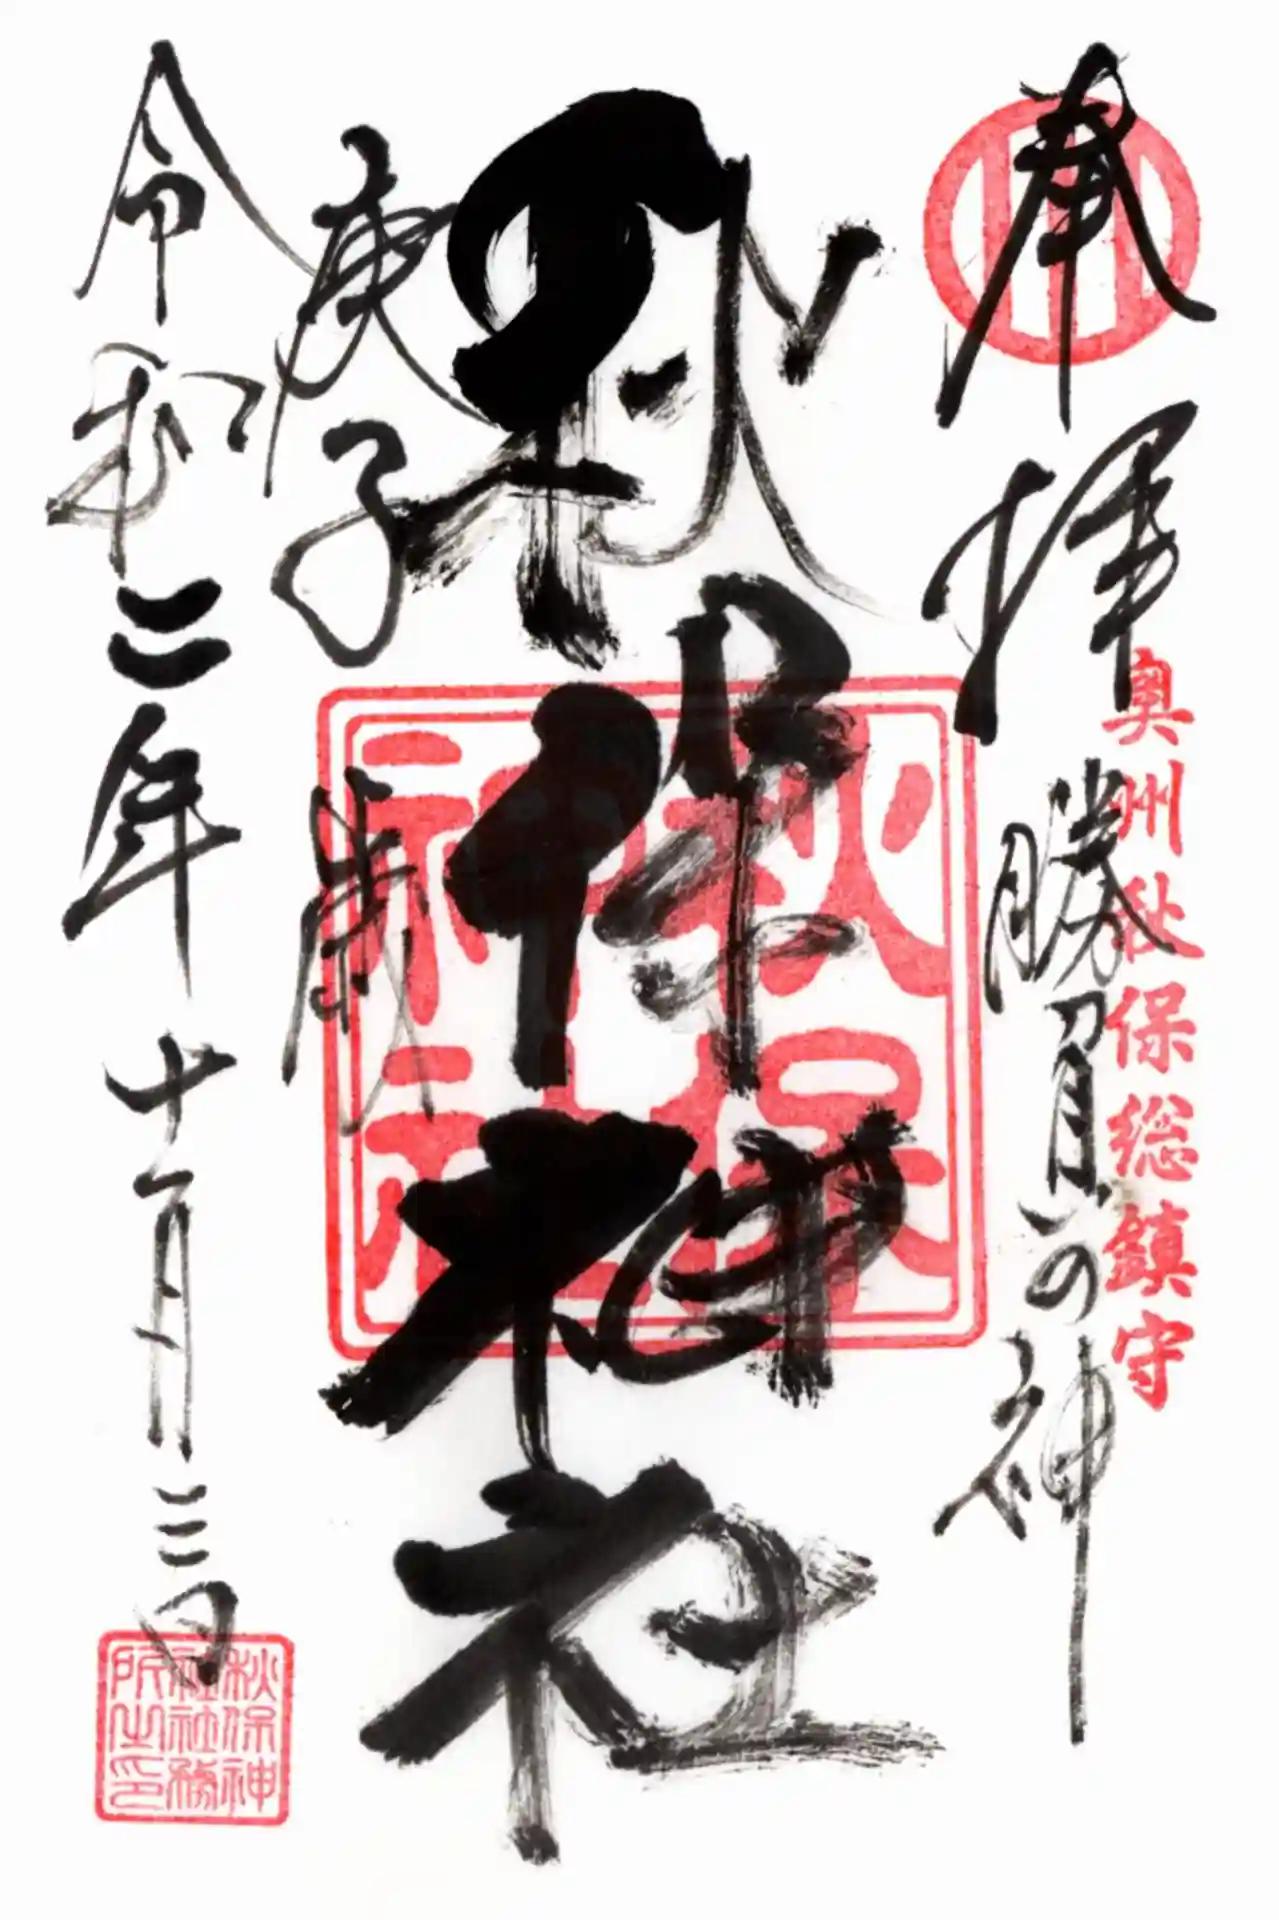 奉拝
奥州秋保総鎮守
勝負の神
秋保神社
秋保神社
庚子歳
令和二年十一月三日
秋保神社社務所之印